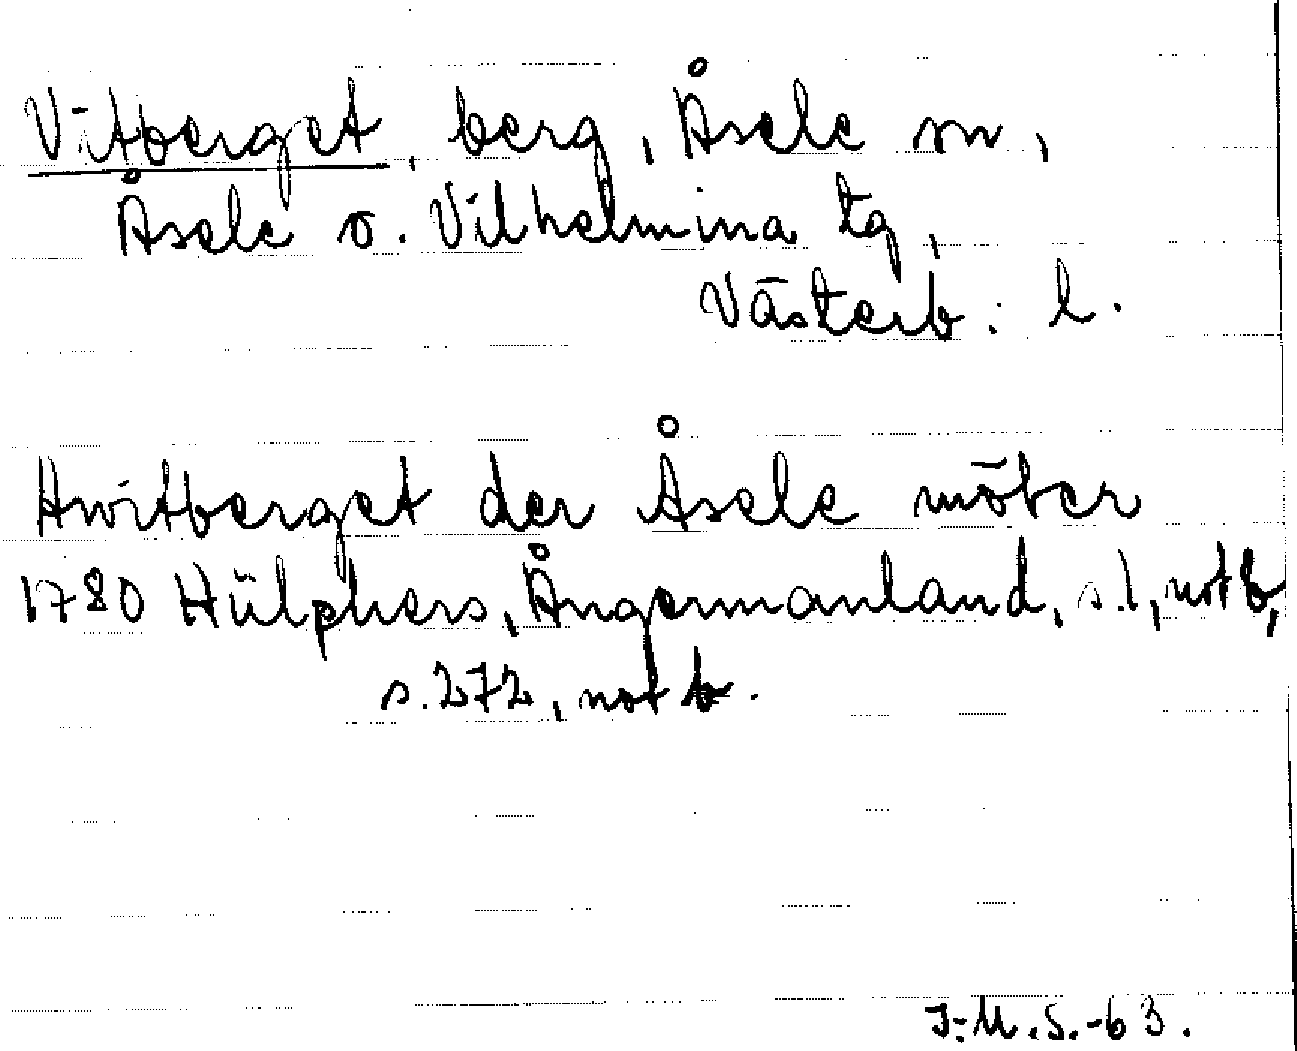 Vitberget, berg, Åsele sn,
Åsele o. Vilhelmina tg,
Västerb: l.
Hwitberget der Åsele möter
1780 Hülphers, Ångermanland, s. 1, not b,
s. 272, not b.
I-M.S.-63.